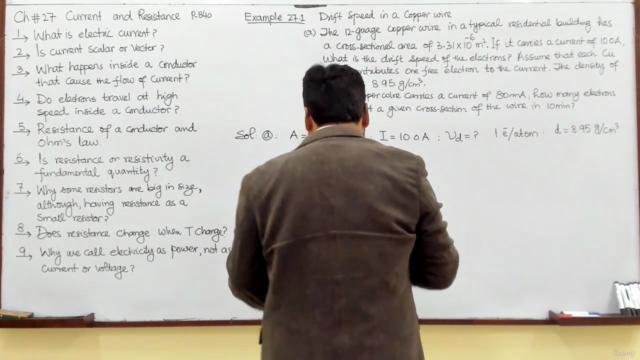 Ch#27 Current and Resistance P.840
1 What is electric current?
2 Is current Scalar or Vector?
3 What happens inside a Conductor
that cause the flow of Current?
4 Do electrons travel at high
speed inside a Conductor?
5 Resistance of a conductor and
Ohm's law
6 Is resistance or resistivity a
fundamental quantity?
7 Why some resistors are big in size,
although, having resistance as a
Small resistor?
8 Does resistance change when T change?
9 Why we call electricity as power, not as
current or voltage?
Example 27.1 Drift Speed in a Copper wire
(a) The 12-gauge copper wire in a typical residential building has
a cross-sectional area of 3.31x10⁻⁶ m². If it carries a current of 10.0A,
What is the drift speed of the electrons? Assume that each Cu
contributes one free electron to the current. The density of
8.95 g/cm³.
copper wire carries a current of 80mA, How many electrons
a given cross-section of the wire in 10min?
Sol. (a) A= I = 10.0A ; Vd = ? 1 ē/atom . d = 8.95 g/cm³